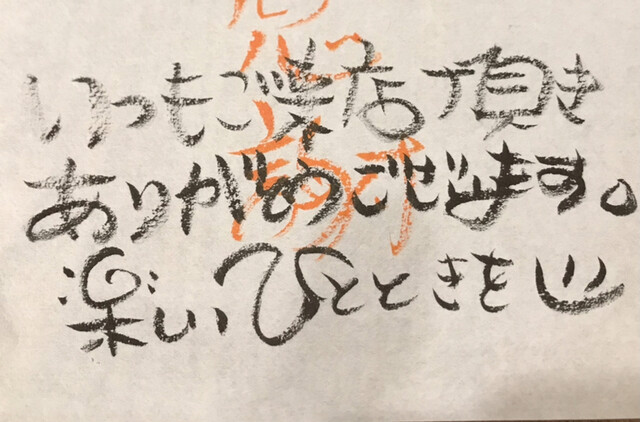 いつもご来店頂き
ありがとうございます。
楽しいひとときを